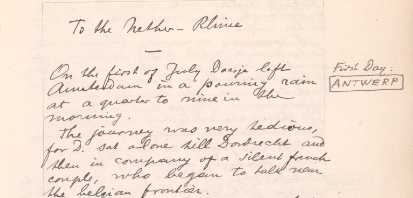 To the Nether-Rhine
On the first of July Dorsje left
Amsterdam in a pouring rain
at a quarter to nine in the
morning.
The journey was very tedious,
for D. sat alone till Dordrecht and
then in company of a silent french
couple, who began to talk near
the belgian frontier.
First Day:
ANTWERP